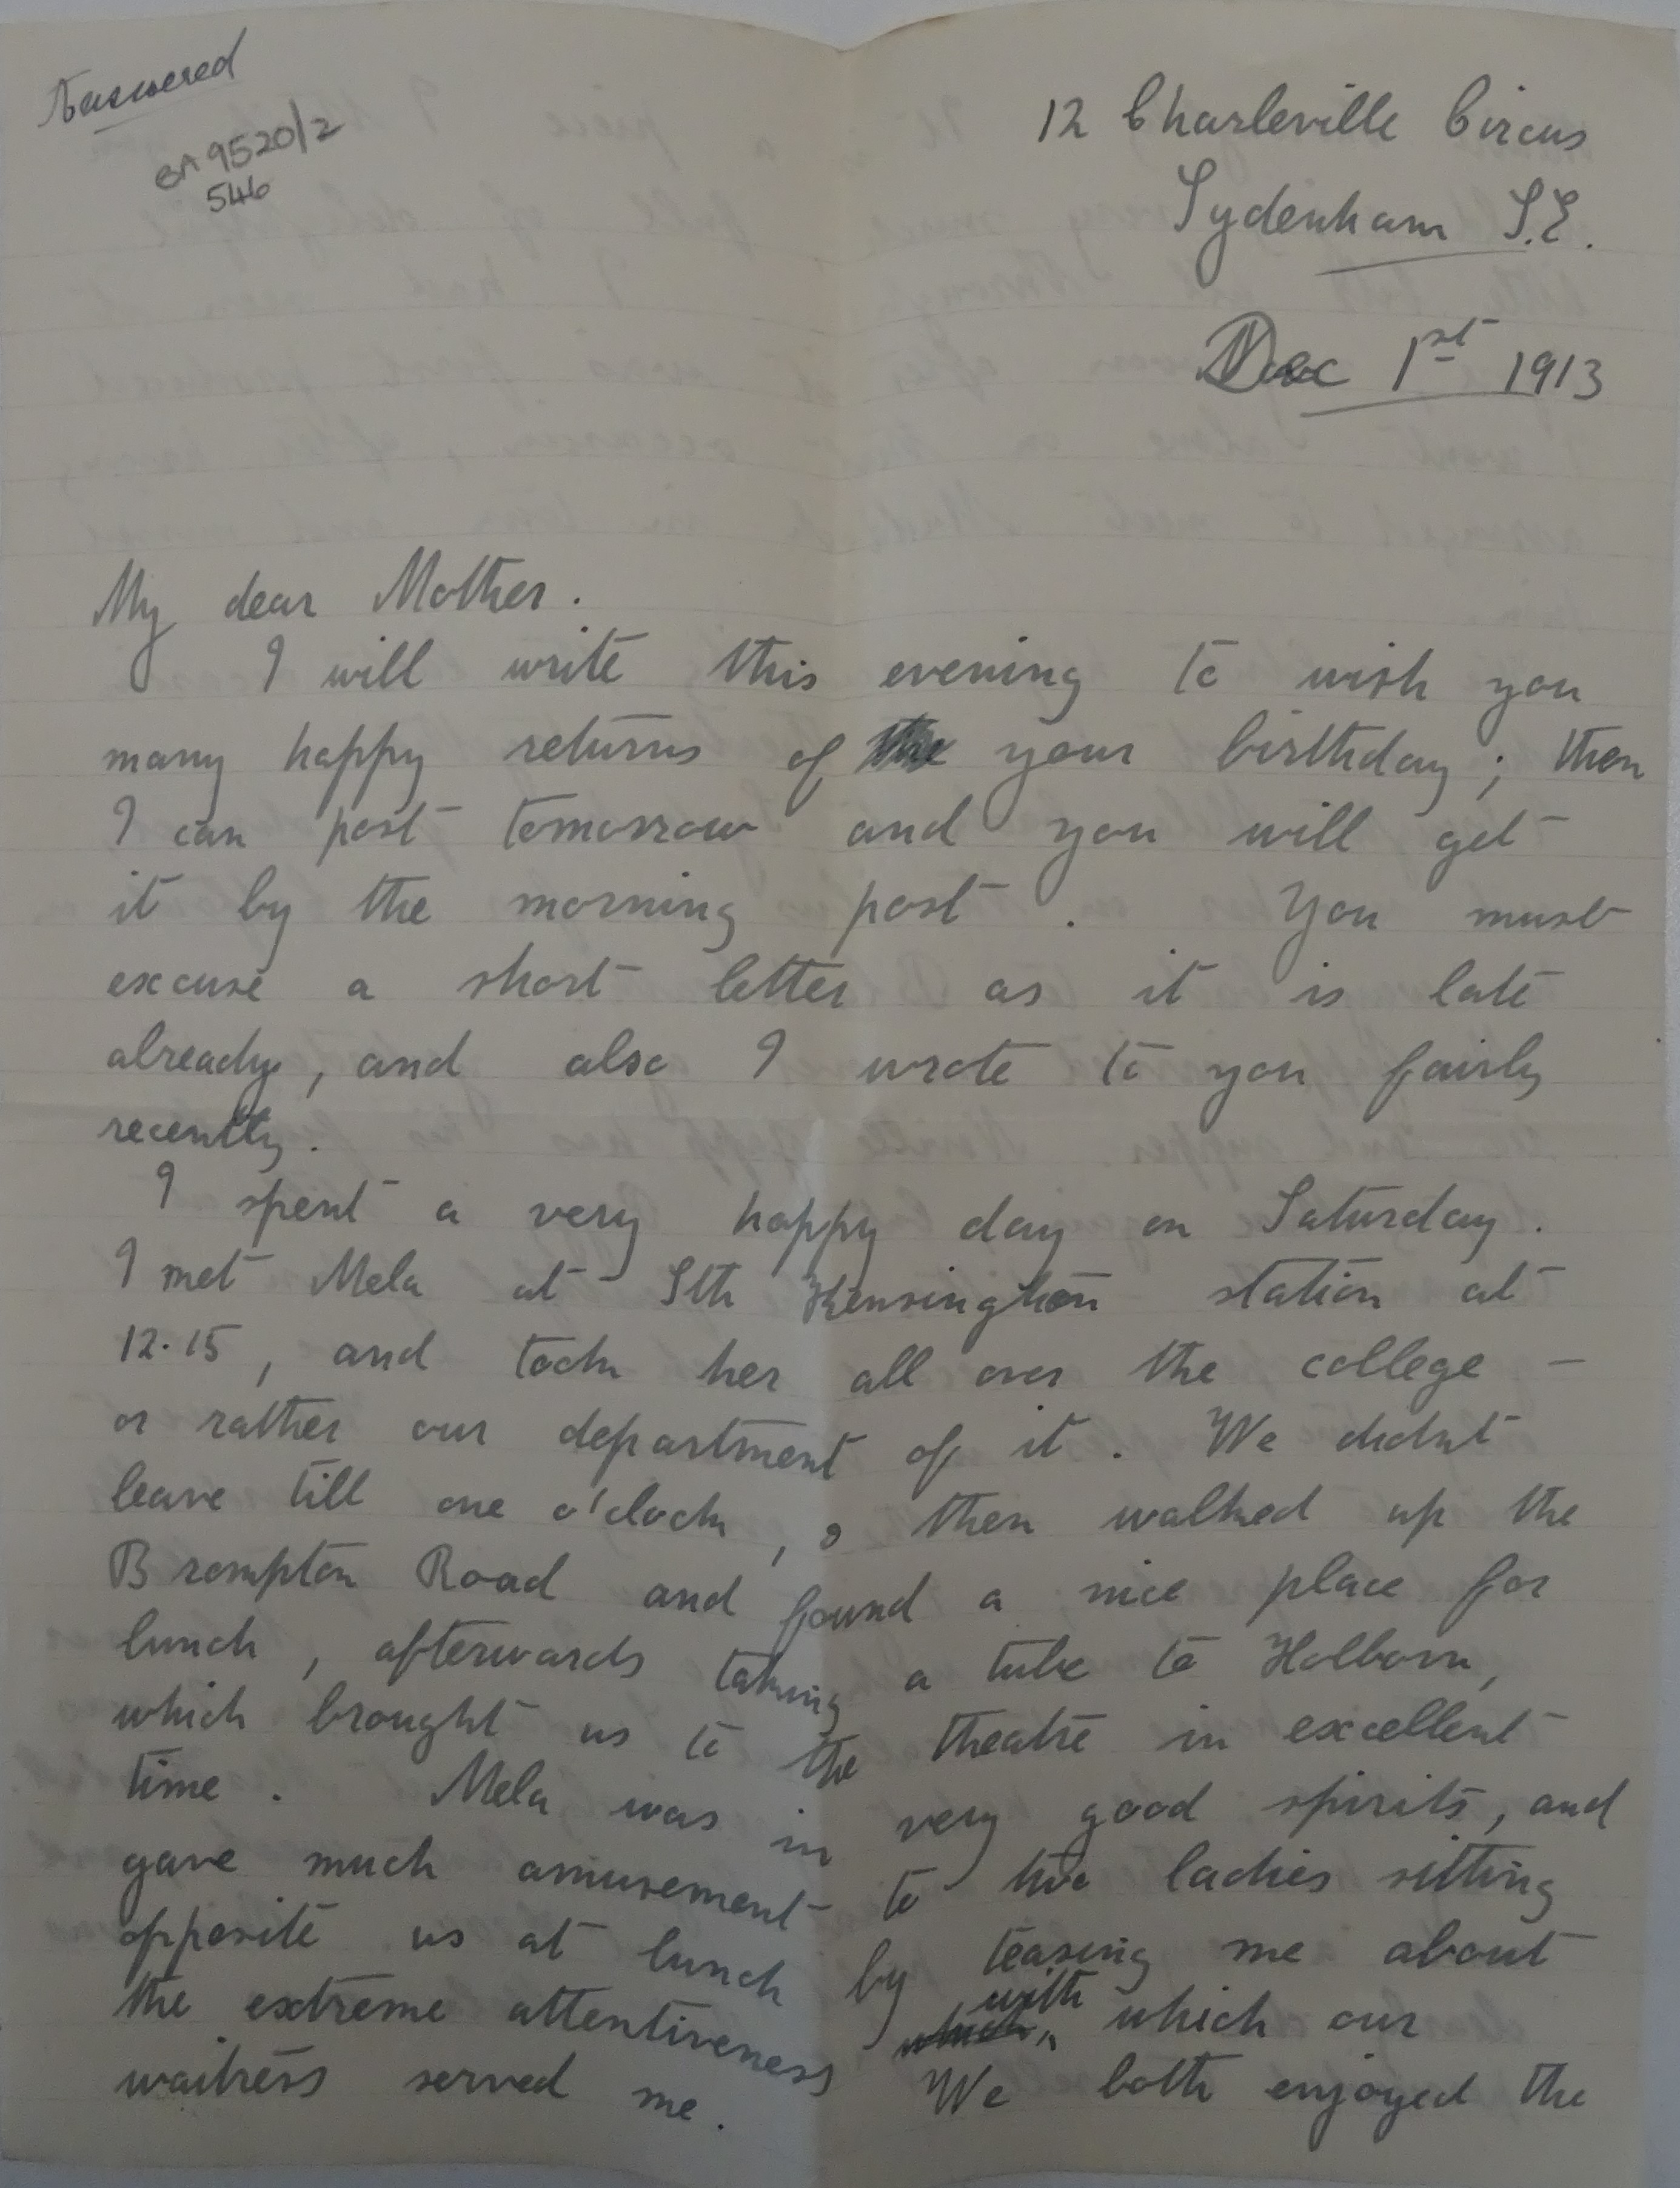 Answered
BA 9520/2
546
12 Charleville Circus
Sydenham S.E.
Dec 1st 1913
My dear Mother.
I will write this evening to wish you
many happy returns of the your birthday; then
I can post tomorrow and you will get
it by the morning post. You must
excuse a short letter as it is late
already, and also I wrote to you fairly
recently.
I spent a very happy day on Saturday.
I met Mela at Sth Kensington station at
12.15, and took her all over the college –
or rather our department of it. We didnt
leave till one o'clock, & then walked up the
Brompton Road and found a nice place for
lunch, afterwards taking a tube to Holborn,
which brought us to the theatre in excellent
time. Mela was in very good spirits, and
gave much amusement to two ladies sitting
opposite us at lunch by teasing me about
the extreme attentiveness which with which our
waitress served me. We both enjoyed the